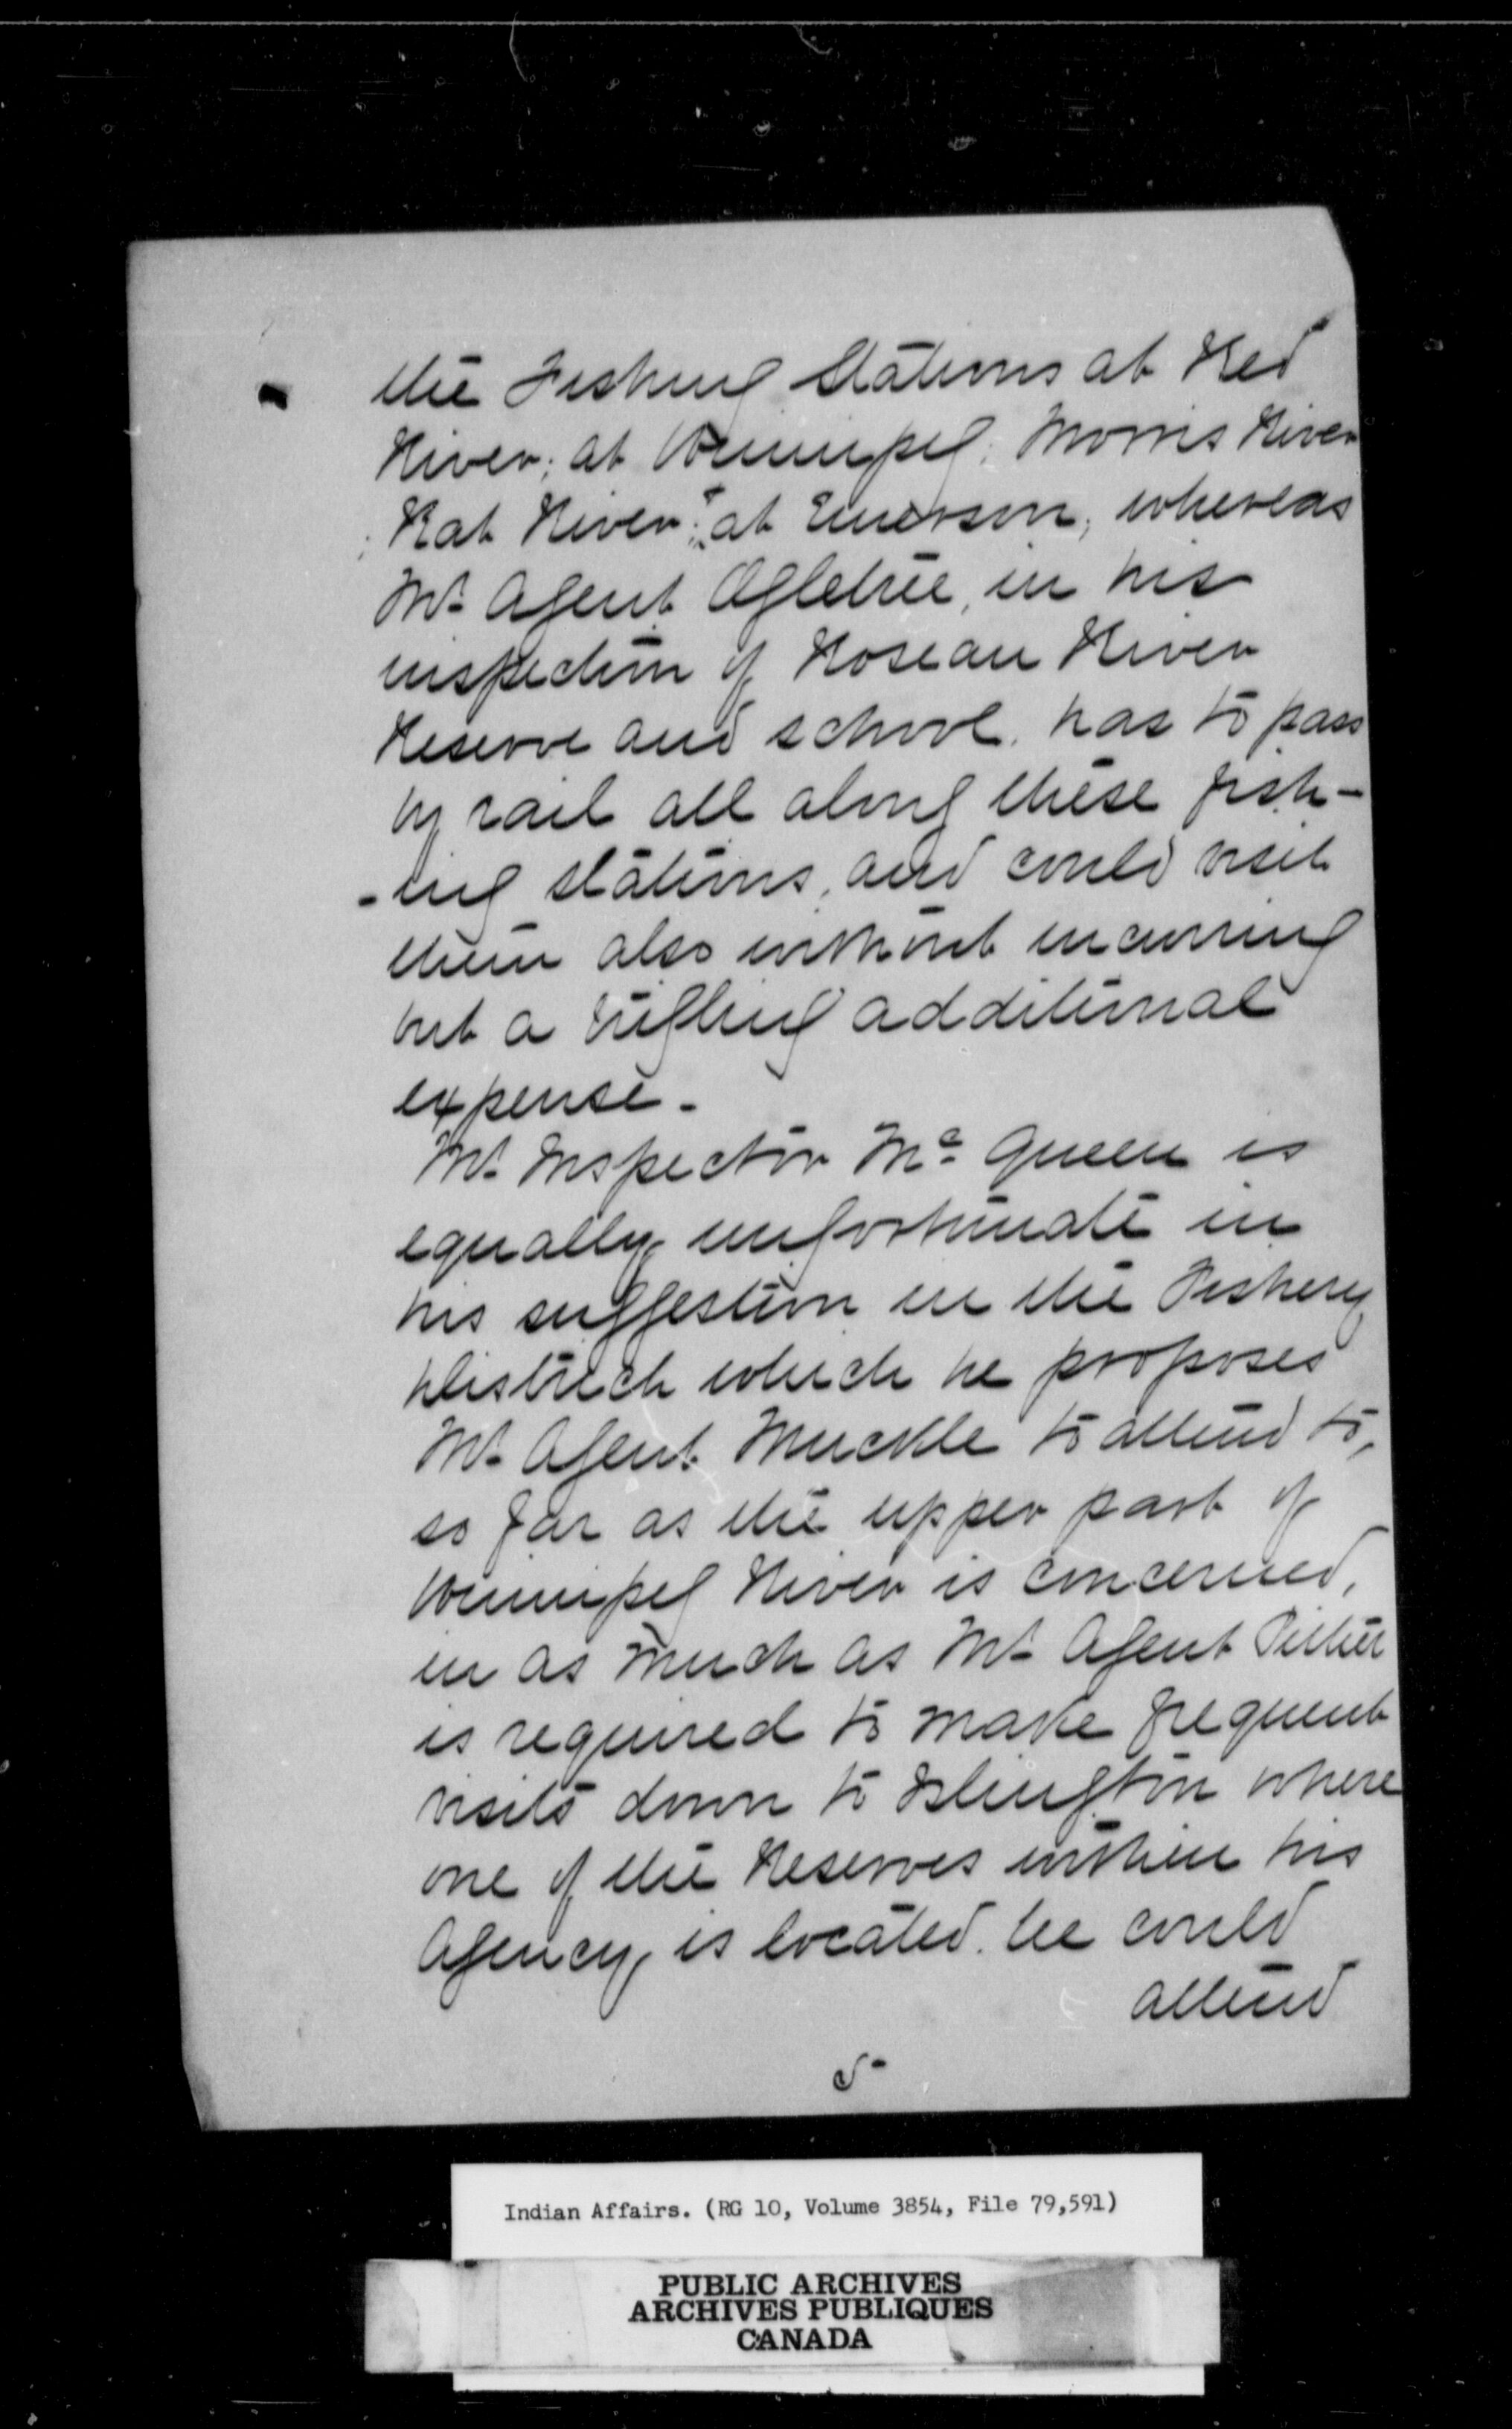 the Fishing Stations at Red
River; at Winnipeg; Morris River
; Rat River; & at Emerson, whereas
Mr. Agent Ogletree, in his
inspection of Roseau River
Reserve and school, has to pass
by rail all along these fish-
-ing stations, and could visit
them also without incurring
but a trifling additional
expense.
Mr. Inspector McQueen is
equally unfortunate in
his suggestion in the Fishery
District which he proposes
Mr. Agent Muckle to attend to,
so far as the upper part of
Winnipeg River is concerned,
in as much as Mr. Agent Pither
is required to make frequent
visits down to Islington where
one of the Reserves within his
Agency is located. he could
attend
5-
Indian Affairs. (RG 10, Volume 3854, File 79,591)
PUBLIC ARCHIVES
ARCHIVES PUBLIQUES
CANADA